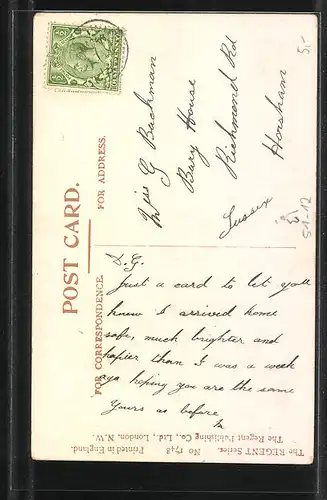 POST CARD.
FOR ADDRESS.
Miss G Bachman
Bury House
Richmond Rd
Horsham
Sussex
FOR CORRESPONDENCE.
D. G.
Just a card to let you
know I arrived home
safe, much brighter and
hapier than I was a week
ago hoping you are the same
Yours as before
The REGENT Series. No 1748 Printed in England.
The Regent Publishing Co., Ltd., London, N.W.
5.-